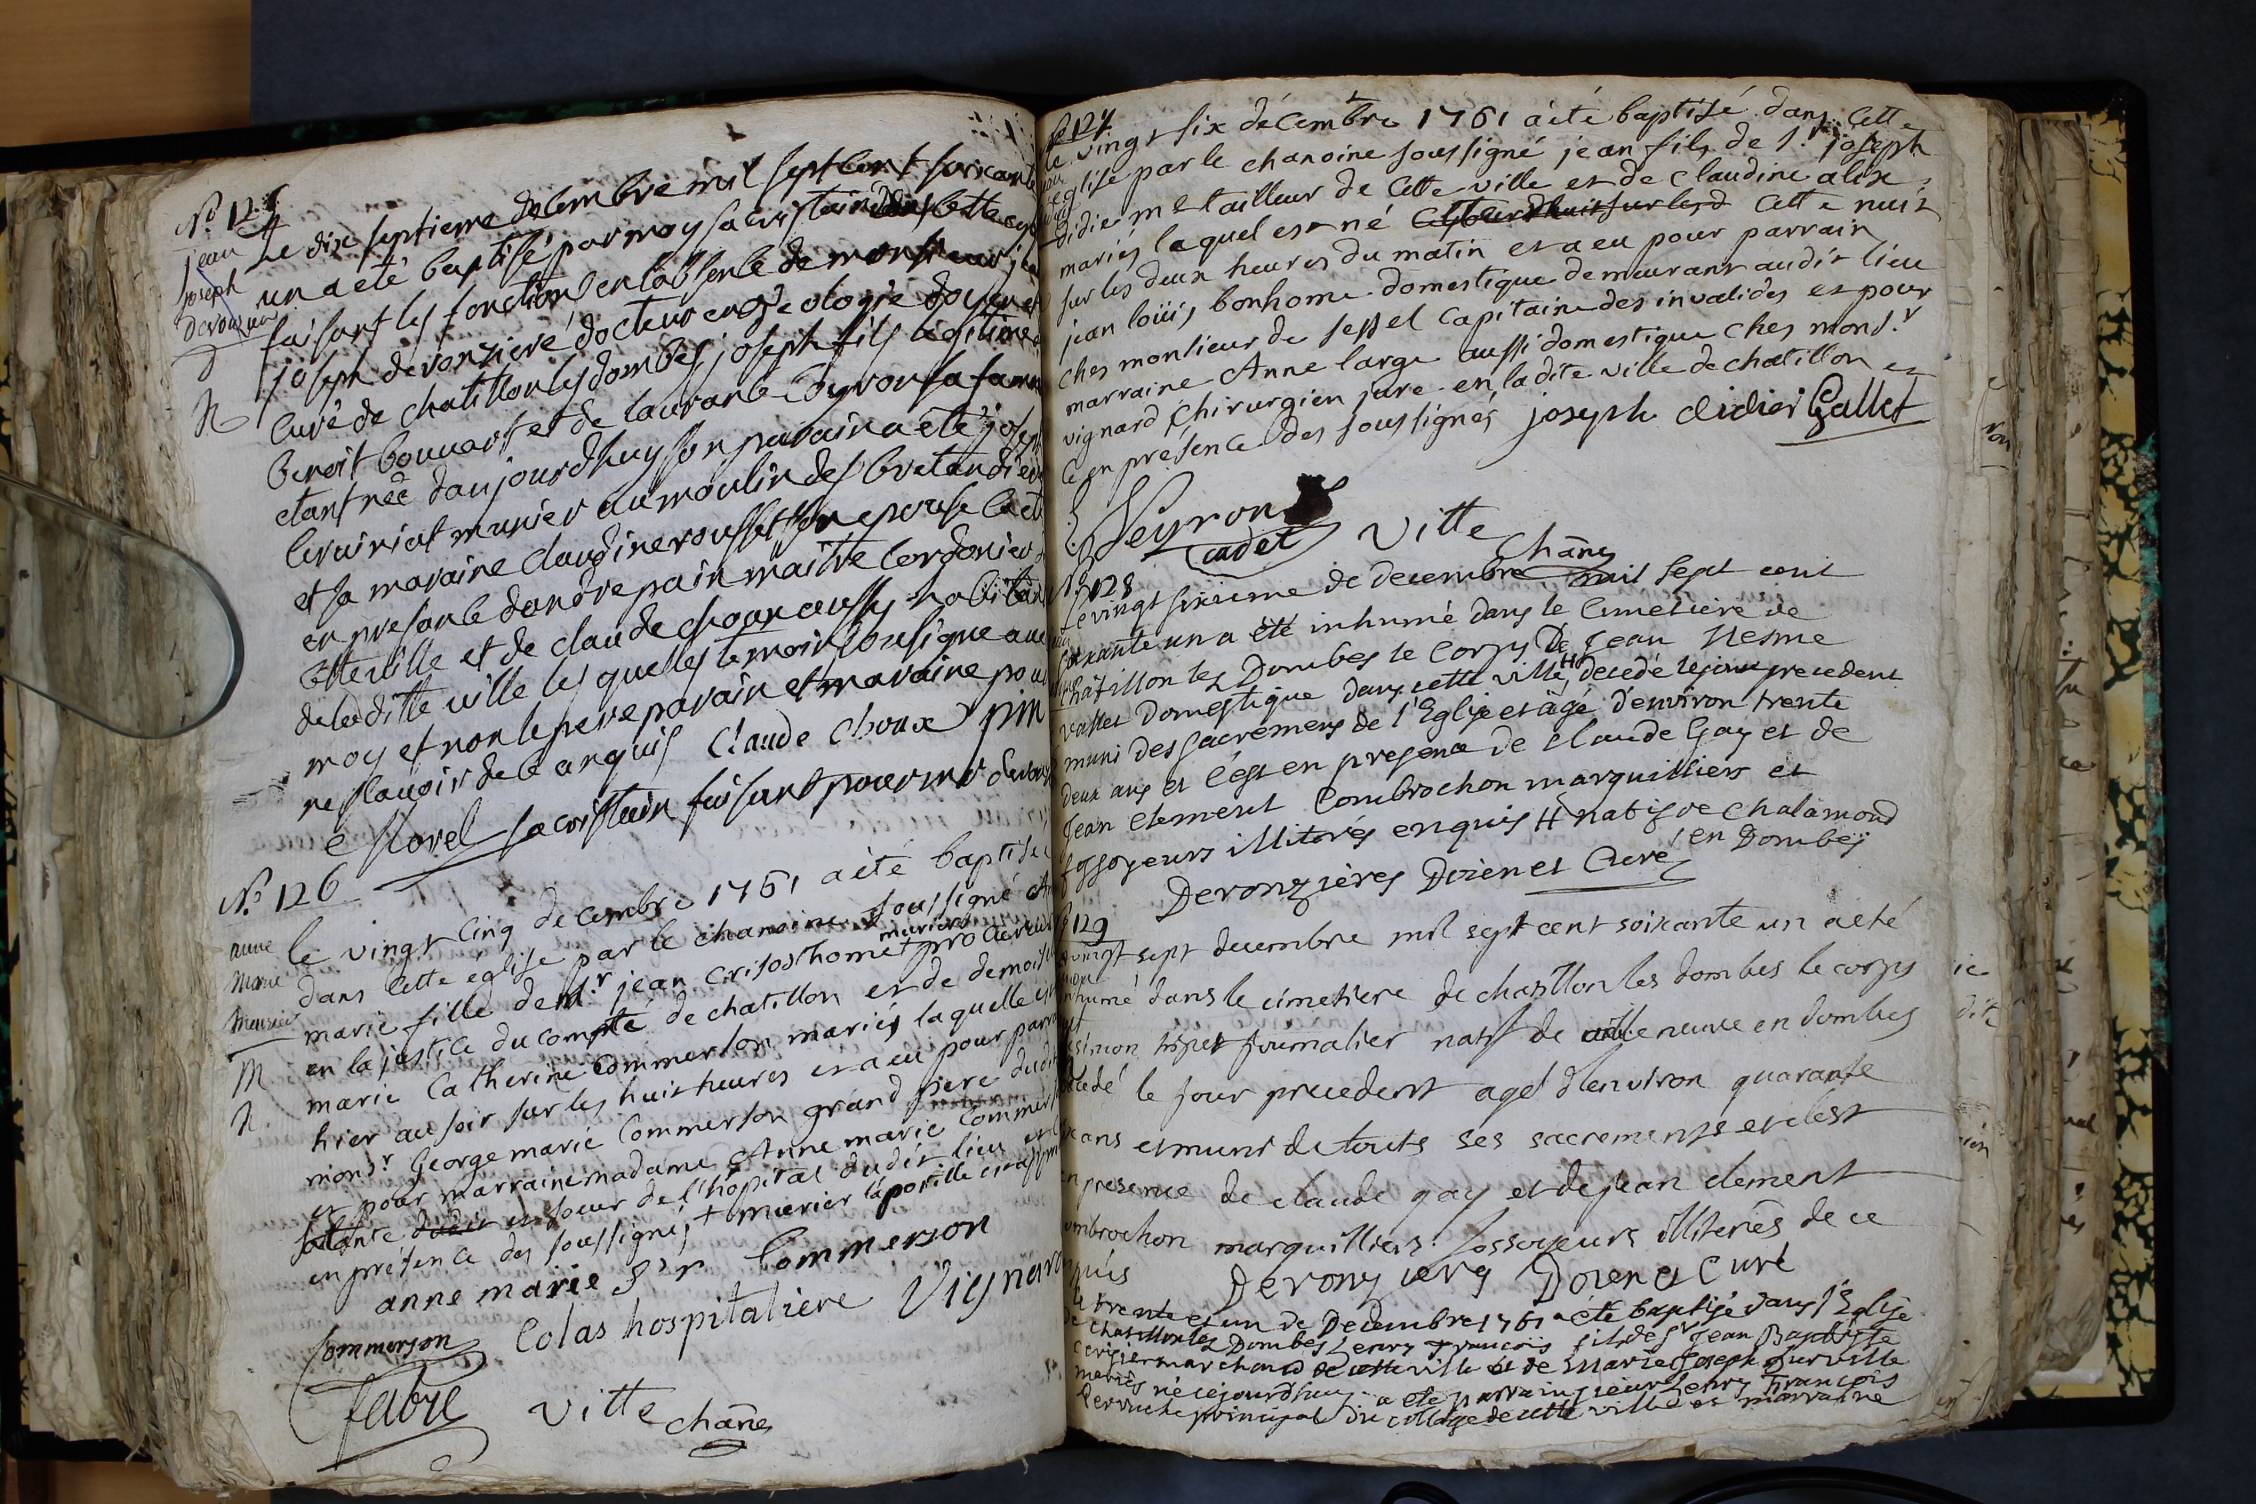 Nº 125
jean
joseph
Le dix septieme decembre mil sept cent soixante
un a eté baptisé par moy sacristain dans cette
faisant les fonctions en labsence de monsieur
joseph deronziere docteur en théologie doyen et
curé de chatillon les dombes joseph fils legitime
benoit bouvart et de laurance
etant née daujourdhuy son parain a eté joseph
munier au moulin des
et sa maraine claudine rousset son epouse
en presance dandre pain maitre cordonier
cette ville et de claude choux aussy habitant
de laditte ville lesquelles temoins sousigne avec
moy et non le pere parain et maraine pour
ne scavoir de ce anquis Claude Choux pin
sacristain faisant pour mr
Nº 126
anne
marie
meusier
M
N
le vingt cinq decembre 1761 a eté baptisé
dans cette eglise par le chanoine soussigné
marie fille de Mr jean crisosthome
en la justice du comté de chatillon et de
marie Catherine Commerson mariés laquelle
hier au soir sur les huit heures et a eu pour
monsr George marie Commerson grand pere
et pour marraine madame Anne marie
sa tante dudit et soeur de l'hôpital dudit lieu
en présence des soussignés
anne marie Commerson
Colas hospitaliere Vignard
Commerson
fabre
Vitte
chāne
Nº 127
le vingt six décembre 1761 a été baptisé dans cette
eglise par le chanoine soussigné jean fils de s.r joseph
didier me tailleur de cette ville et de claudine alix
mariés lequel est né cette nuit
sur les deux heures du matin et a eu pour parrain
jean loüis bonhome domestique demeurant audit lieu
ches monsieur de sessel capitaine des invalides et pour
marraine Anne large aussi domestique ches mons.r
vignard chirurgien juré en la dite ville de chatillon et
ce en présence des soussignés joseph didier Gallet
Neyron
cadet
Vitte
chāne
128
le vingt sixieme de decembre mil sept cent
soixante un a été inhumé dans le Cimetiere de
Châtillon les Dombes le Corps de Jean Nesme
vallet Domestique dans cette ville H decedé le jour precedent
muni des sacremens de l'Eglise et âgé d'environ trente
deux ans et c'est en presence de Claude Gay et de
Jean clement Combrochon marguilliers et
fossoyeurs illiterés enquis H natif de Chalamond
en Dombes
Deronzières Doien et Curé
129
vingt sept decembre mil sept cent soixante un a eté
inhumé dans le cimetiere de chatillon les dombes le corps
journalier natif de villeneuve en dombes
decedé le jour precedent agé d'environ quarante
ans et muni de touts ses sacremens et c'est
en presence de claude gay et de jean clement
combrochon marguilliers fossoyeurs illiterés de ce
enquis Deronzieres Doien et Curé
Le trente et un de Decembre 1761 a été baptisé dans l'Eglise
de Chatillon les Dombes henry françois fils de sr Jean Baptiste
marchand de cette ville et de Marie Joseph
mariés né cejourdhuy a été parrain sieur henry françois
Perruche principal du college de cette ville et marraine